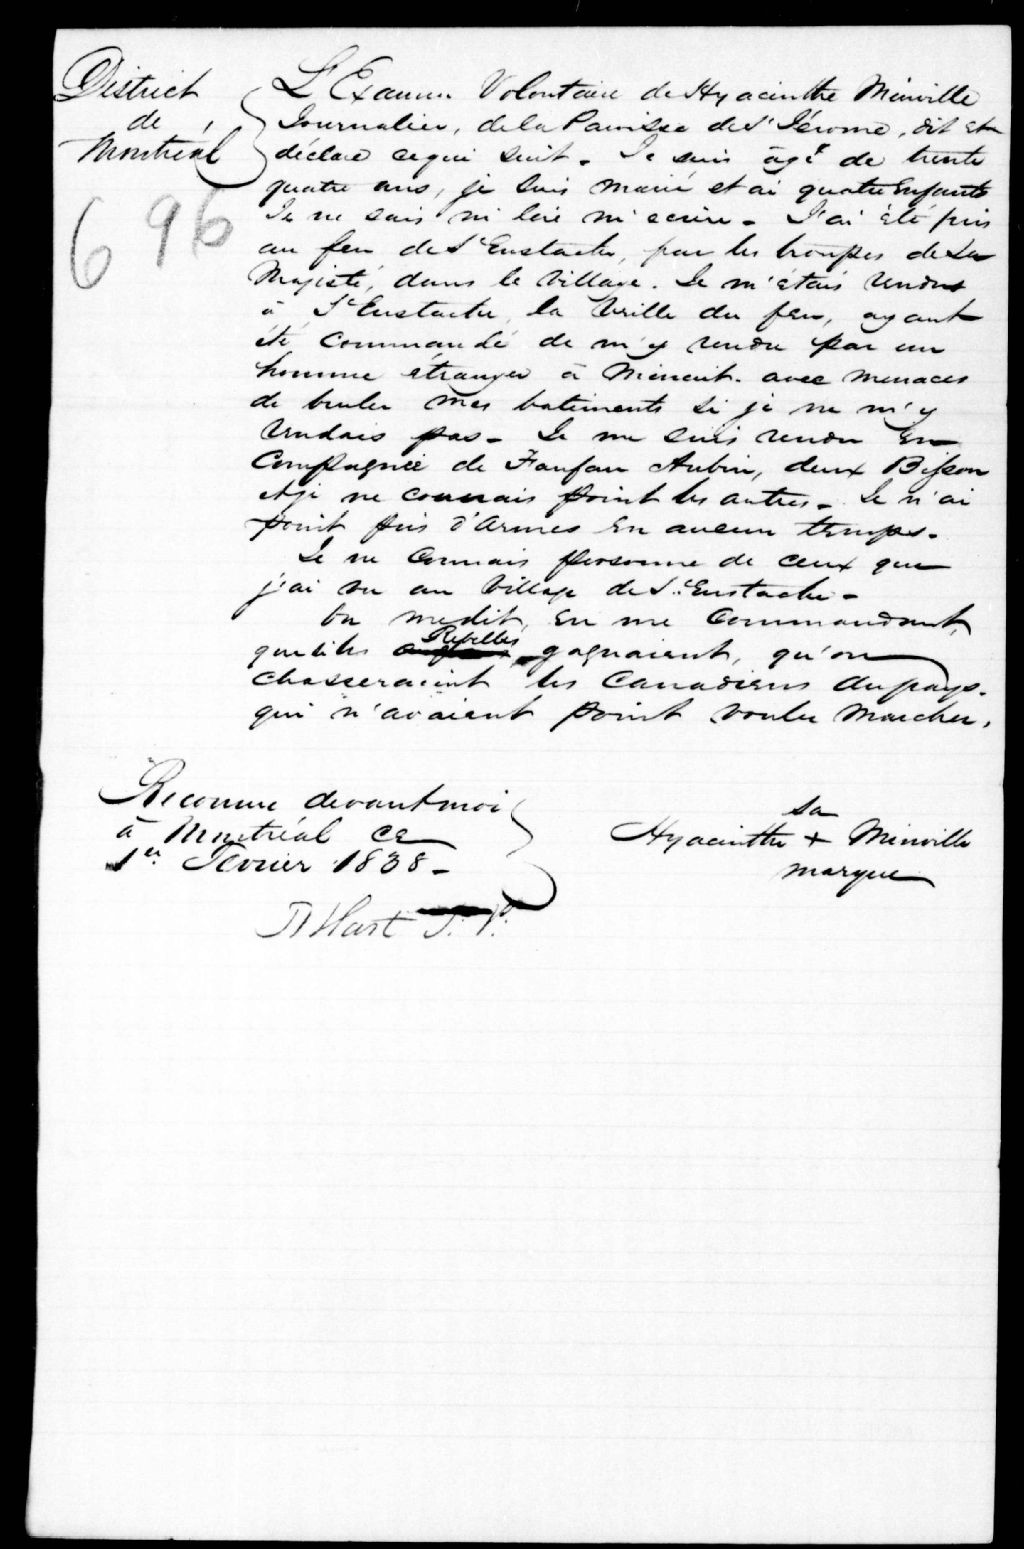 District
de
Montréal
696
L'Examen Volontaire de Hyacinthe Minville
Journalier, de la Paroisse de St Jérome, dit et
déclare ce qui suit. Je suis agé de trente
quatre ans, je suis marié et ai quatre Enfants
Je ne sais ni lire ni ecrire. J'ai été pris
au feu de St Eustache, par les troupes de Sa
Majesté, dans le Village. Je m'étais rendu
à St Eustache, la Veille du feu, ayant
été Commandé de m'y rendre par un
homme étranger à Minuit. avec menaces
de bruler mes batiments si je ne m'y
rendais pas - Je me suis rendu En
Compagnie de Fanfan Aubin, deux Bisson
et je ne connais point les autres. Je n'ai
point pris d'Armes En aucun temps.
Je ne Connais personne de ceux que
j'ai vu au Village de St. Eustache -
On me dit, en me Commandant,
Rebelles
que si les gagnaient, qu'on
chasseraient les Canadiens du pays.
qui n'avaient point voulu Marcher.
Reconnu devant moi
à Montréal ce
1er Fevrier 1838 -
sa
Hyacinthe + Minville
marque
Hart J. P.